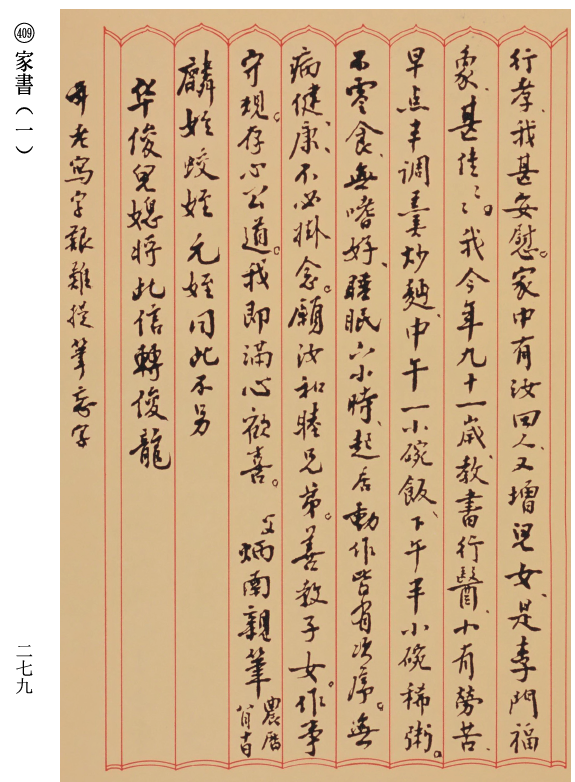 409 家書(一)
行孝、我甚安慰。家中有汝四人、又增兒女、是李門福
象、甚佳々々。我今年九十一歲、教書行醫、小有勞苦、
早点半調羹炒麵、中午一小碗飯、下午半小碗稀粥。
不零食、無嗜好、睡眠六小時、起居動作皆有次序。無
病健康、不必掛念。願汝和睦兄弟。善教子女。作事
守規。存心公道。我即滿心歡喜。 父炳南親筆 農曆
麟姪蛟姪元姪同此不另
华俊兒媳將此信轉俊龍
年老寫字艱難提筆忘字
二七九